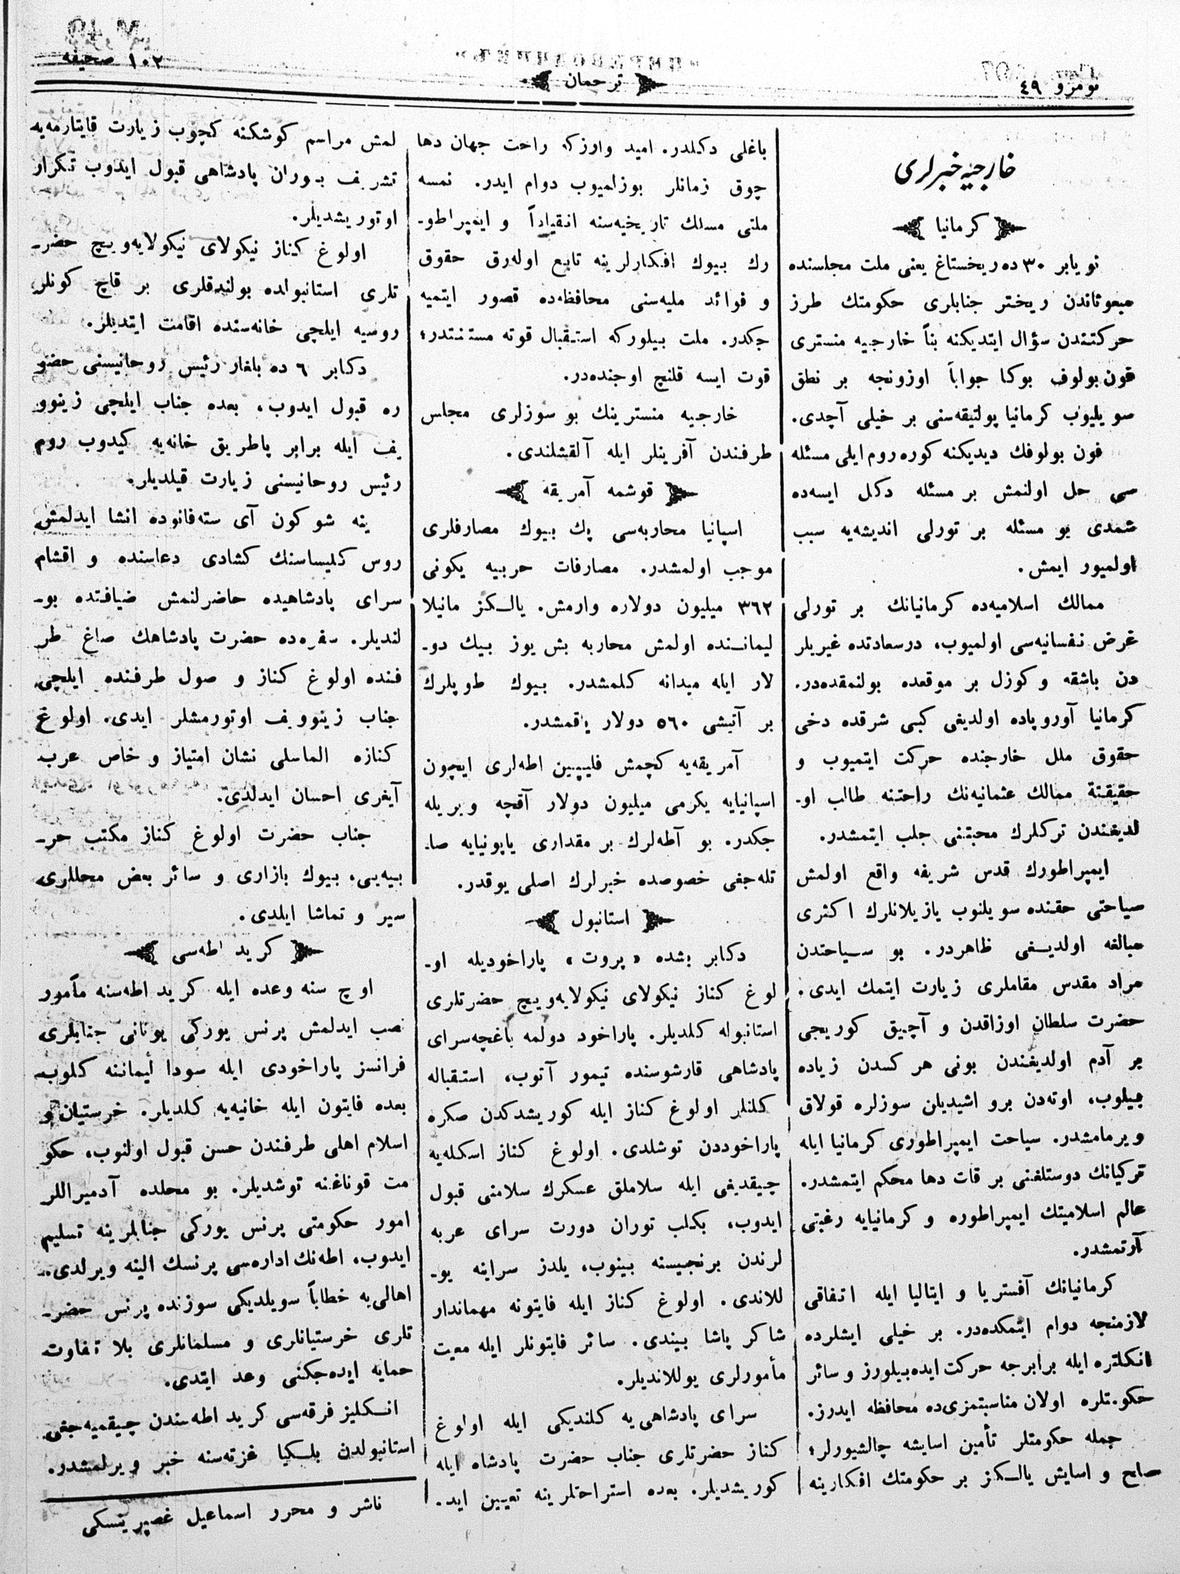 نومرو ٤٩
ترجمان
١٠٢ صحيفه
خارجيه خبرلرى
كرمانيا
نويابر ٣٠ ده ريخستاغ يعنى ملت مجلسنده
مبعوثاندن ريختر جنابلرى حكومتك طرز
حركتندن سؤال ايتديكنه بناً خارجيه منسترى
فون بولوف بوكا جواباً اوزونجه بر نطق
سويليوب كرمانيا پولتيقه‌سنى بر خيلى آچدى.
فون بولوفك ديديكنه كوره روم ايلى مسئله
سى حل اولنمش بر مسئله دكل ايسه‌ده
شمدى بو مسئله بر تورلى انديشه‌يه سبب
اولميور ايمش.
ممالك اسلاميه‌ده كرمانيانك بر تورلى
غرض نفسانيه‌سى اولميوب، درسعادتده غيريلر
دن باشقه و كوزل بر موقعده بولنمقده‌در.
كرمانيا آوروپاده اولديغى كبى شرقده دخى
حقوق ملل خارجنده حركت ايتميوب و
حقيقتة ممالك عثمانيه‌نك راحتنه طالب او-
لديغندن تركلرك محبتنى جلب ايتمشدر.
ايمپراطورك قدس شريفه واقع اولمش
سياحتى حقنده سويلنوب يازيلانلرك اكثرى
مبالغه اولديغى ظاهردر. بو سياحتدن
مراد مقدس مقاملرى زيارت ايتمك ايدى.
حضرت سلطان اوزاقدن و آچيق كوريجى
بر آدم اولديغندن بونى هر كسدن زياده
بيلوب، اوته‌دن برو اشيديلن سوزلره قولاق
ويرمامشدر. سياحت ايمپراطورى كرمانيا ايله
تركيانك دوستلغنى بر قات دها محكم ايتمشدر.
عالم اسلاميتك ايمپراطوره و كرمانيايه رغبتى
آرتمشدر.
كرمانيانك آفستريا و ايتاليا ايله اتفاقى
لازمنجه دوام ايتمكده‌در. بر خيلى ايشلرده
انكلتره ايله برابرجه حركت ايده‌بيلورز و سائر
حكومتلره اولان مناسبتمزى‌ده محافظه ايدرز.
جمله حكومتلر تأمين اسايشه چالشيورلر؛
صلح و اسايش يالـكز بر حكومتك افكارينه
باغلى دكلدر. اميد وارزكه راحت جهان دها
چوق زمانلر بوزلميوب دوام ايدر. نمسه
ملتى مسلك تاريخيه‌سنه انقياداً و ايمپراطو-
رك بيوك افكارلرينه تابع اوله‌رق حقوق
و فوائد مليه‌سنى محافظه‌ده قصور ايتميه
جكدر. ملت بيلوركه استقبال قوته مستنددر؛
قوت ايسه قلنچ اوجنده‌در.
خارجيه منسترينك بو سوزلرى مجلس
طرفندن آفرينلر ايله آلقشلندى.
قوشمه آمريقه
اسپانيا محاربه‌سى پك بيوك مصارفلرى
موجب اولمشدر. مصارفات حربيه يكونى
٣٦٢ ميليون دولاره وارمش. يالـكز مانيلا
ليمانـنده اولمش محاربه بش يوز بيك دو-
لار ايله ميدانه كلمشدر. بيوك طوپلرك
بر آتيشى ٥٦٠ دولار ياقمشدر.
آمريقه‌يه كچمش فليپين اطه‌لرى ايچون
اسپانيايه يكرمى ميليون دولار آقچه ويريله
جكدر. بو آطه‌لرك بر مقدارى ياپونيايه صا-
تله‌جغى خصوصده خبرلرك اصلى يوقدر.
استانبول
دكابر بشده «پروت» پاراخوديله او-
لوغ كناز نيكولاى نيكولايه‌ويچ حضرتلرى
استانبوله كلديلر. پاراخود دولمه باغچه‌سراى
پادشاهى قارشوسنده تيمور آتوب، استقباله
كلنلر اولوغ كناز ايله كوريشدكدن صكره
پاراخوددن توشلدى. اولوغ كناز اسكله‌يه
چيقديغى ايله سلاملق عسكرك سلامنى قبول
ايدوب، بكلب توران دورت سراى عربه
لرندن برنجيسنه بينوب، يلدز سراينه يو-
للاندى. اولوغ كناز ايله فايتونه مهماندار
شاكر پاشا بيندى. سائر فايتونلر ايله معيت
مأمورلرى يوللانديلر.
سراى پادشاهى‌يه كلنديكى ايله اولوغ
كناز حضرتلرى جناب حضرت پادشاه ايله
كوريشديلر. بعده استراحتلرينه تعيين ايد-
لمش مراسم كوشكنه كچوب زيارت قايتارمه‌يه
تشريف بوران پادشاهى قبول ايدوب تكرار
اوتوريشديلر.
اولوغ كناز نيكولاى نيكولايه‌ويچ حضر-
تلرى استانبولده بولندقلرى بر قاچ كونلر
روسيه ايلچى خانه‌سنده اقامت ايتديلر.
دكابر ٦ ده بلغار رئيس روحانيسنى حضو
ره قبول ايدوب، بعده جناب ايلچى زينوو
يف ايله برابر پاطريق خانه‌يه كيدوب روم
رئيس روحانيسنى زيارت قيلديلر.
ينه شو كون آى سته‌فانوده انشا ايدلمش
روس كليساسنك كشادى دعاسنده و اقشام
سراى پادشاهيده حاضرلنمش ضيافتده بو-
لنديلر. سفره‌ده حضرت پادشاهك صاغ طر
فنده اولوغ كناز و صول طرفنده ايلچى
جناب زينوويف اوتورمشلر ايدى. اولوغ
كنازه الماسلى نشان امتياز و خاص عرب
آيغرى احسان ايدلدى.
جناب حضرت اولوغ كناز مكتب حر-
بيه‌يى، بيوك بازارى و سائر بعض محللرى
سير و تماشا ايلدى.
كريد اطه‌سى
اوچ سنه وعده ايله كريد اطه‌سنه مأمور
نصب ايدلمش پرنس يوركى يونانى جنابلرى
فرانسز پاراخودى ايله سودا ليماننه كلوب
بعده فايتون ايله خانيه‌يه كلديلر. خرستيان و
اسلام اهلى طرفندن حسن قبول اولنوب، حكو
مت قوناغنه توشديلر. بو محلده آدميراللر
امور حكومتى پرنس يوركى جنابلرينه تسليم
ايدوب، اطه‌نك اداره‌سى پرنسك الينه ويرلدى.
اهالى‌يه خطاباً سويلديكى سوزنده پرنس حضر-
تلرى خرستيانلرى و مسلمانلرى بلا تفاوت
حمايه ايده‌جكنى وعد ايتدى.
انـكليز فرقه‌سى كريد اطه‌سندن چيقميه‌جغى
استانبولدن بلـكيا غزته‌سنه خبر ويرلمشدر.
ناشر و محرر اسماعيل غصپرينسكى